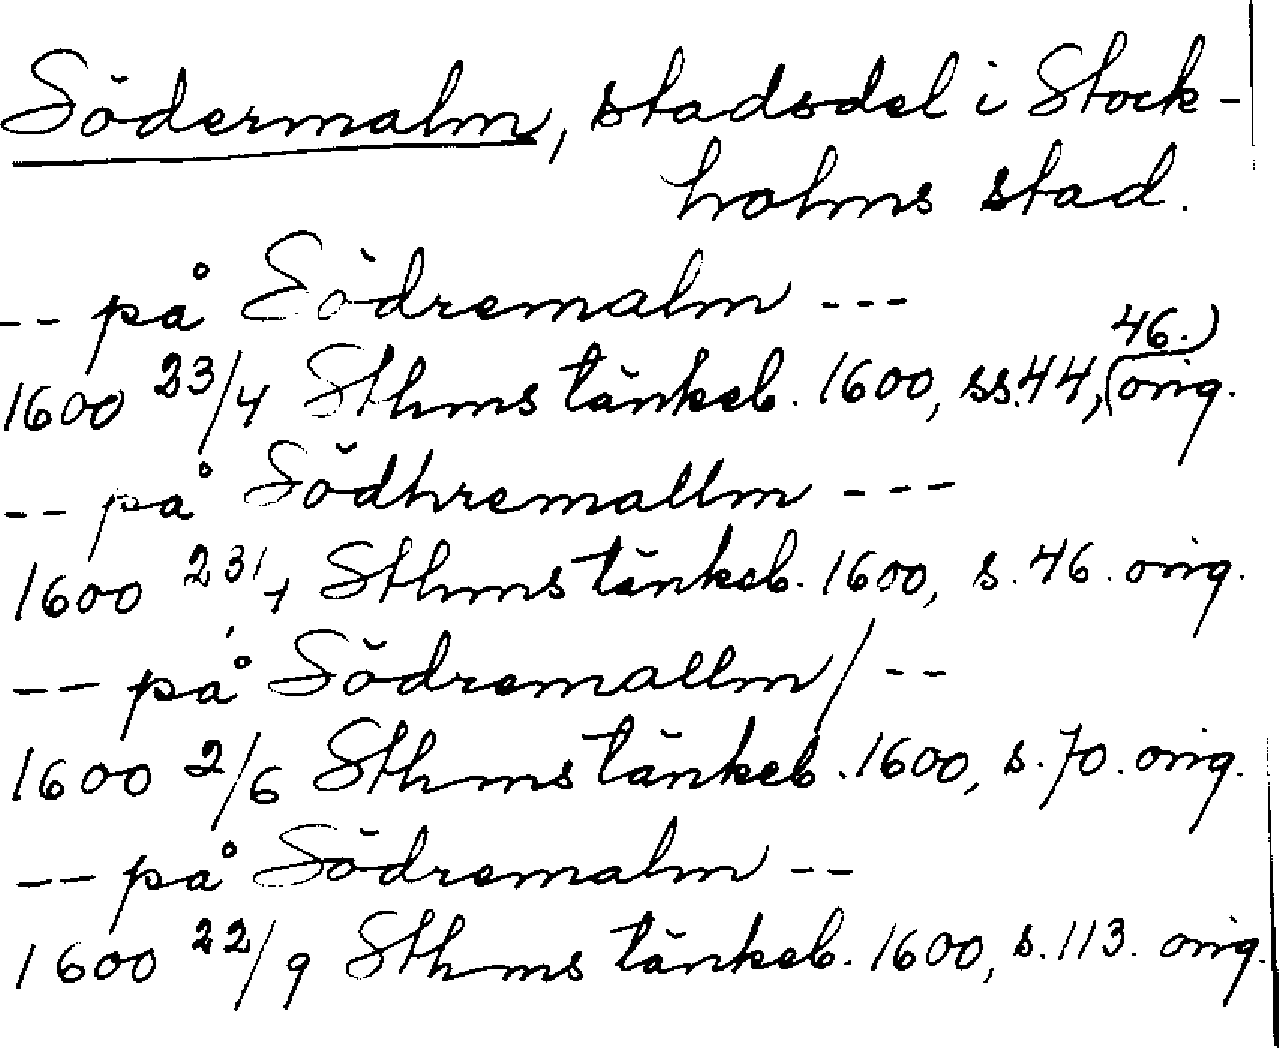 Södermalm, stadsdel i Stock-
holms stad.
-- på Södremalm ---
1600 23/4 Sthms tänkeb. 1600, ss. 44, 46.) orig.
-- på Södhremallm ---
1600 23/4 Sthms tänkeb. 1600, s. 46. orig.
-- på Södremallm/--
1600 2/6 Sthms tänkeb. 1600, s. 70. orig.
-- på Södremalm --
1600 22/9 Sthms tänkeb. 1600, s. 113. orig.